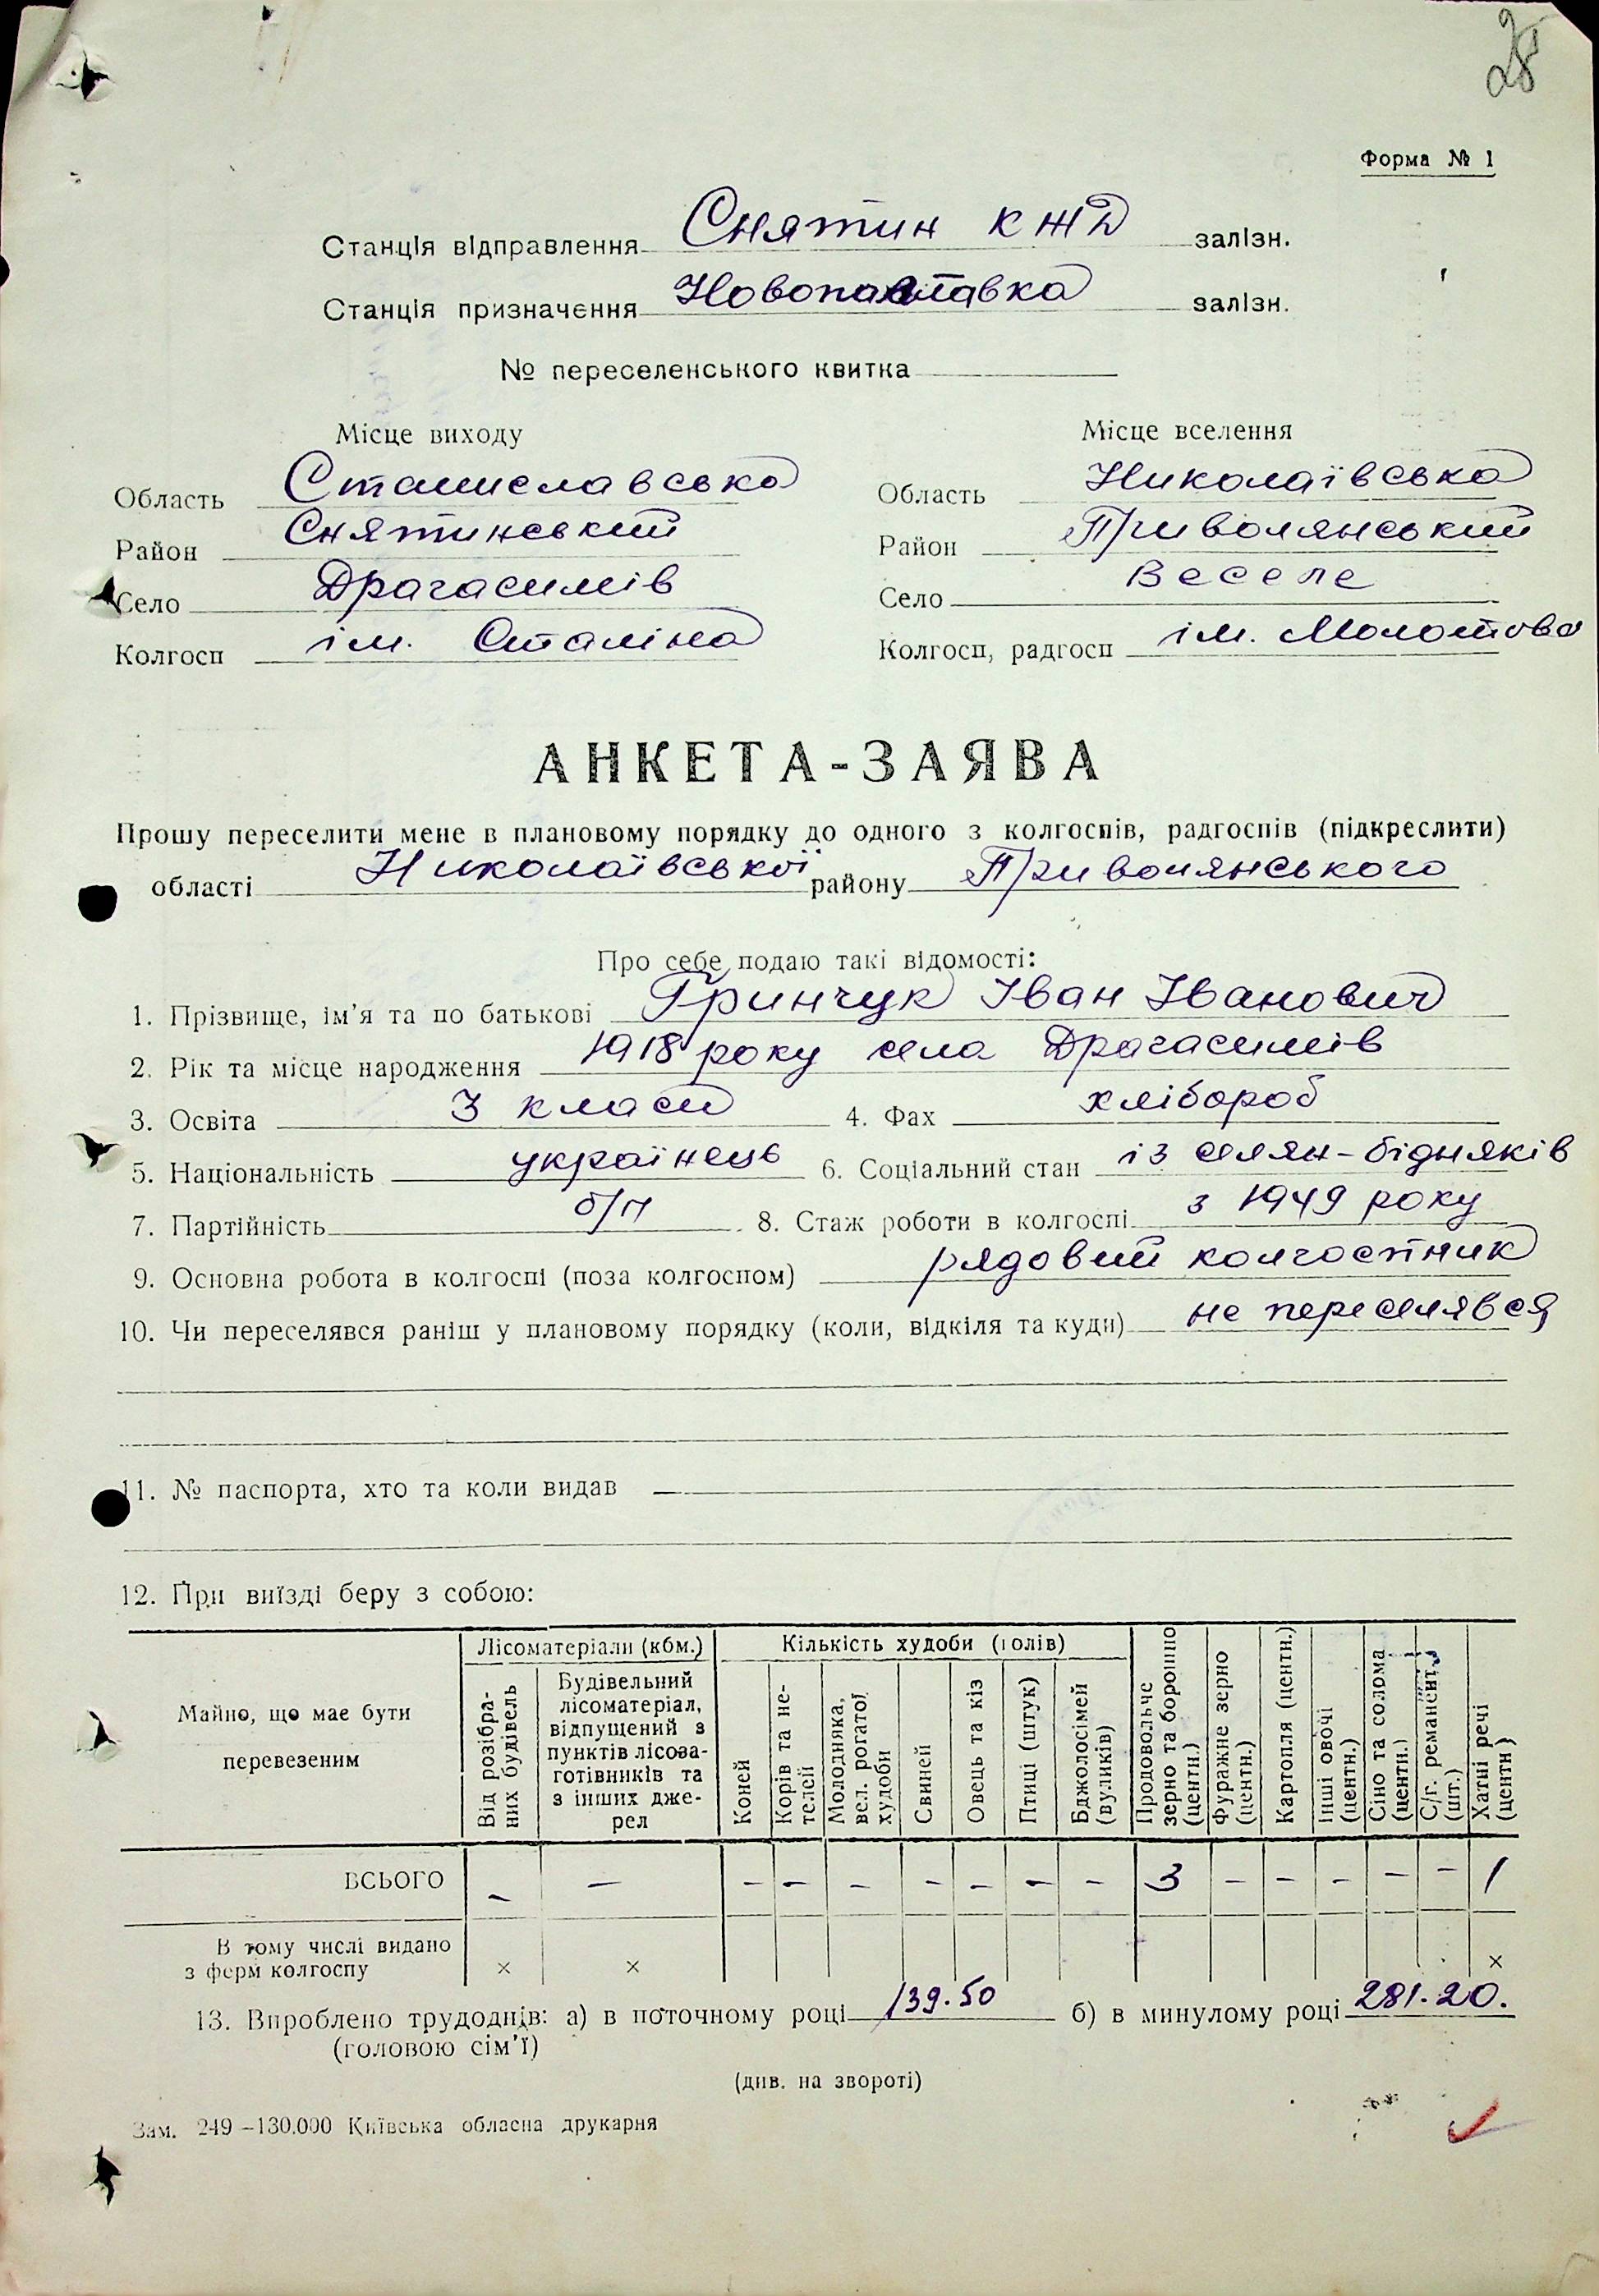 28
Форма № 1
Станція відправлення Снятин КЖД залізн.
Станція призначення залізн.
№ переселенського квитка
Місце виходу Місце вселення
Область Станиславська Область Николаївська
Район Снятинський Район Привольянський
Село Драгасимів Село Веселе
Колгосп ім. Сталіна Колгосп, радгосп ім. Молотова
АНКЕТА-ЗАЯВА
Прошу переселити мене в плановому порядку до одного з колгоспів, радгоспів (підкреслити)
області Николаївської району Привольянського
Про себе подаю такі відомості:
1. Прізвище, ім'я та по батькові Гринчук Іван Іванович
2. Рік та місце народження 1918 року села Драгасимів
3. Освіта 3 класи 4. Фах хлібороб
5. Національність українець 6. Соціальний стан із селян-бідняків
7. Партійність б/п 8. Стаж роботи в колгоспі з 1949 року
9. Основна робота в колгоспі (поза колгоспом) рядовий колгоспник
10. Чи переселявся раніш у плановому порядку (коли, відкіля та куди) не переселявся
11. № паспорта, хто та коли видав
12. При виїзді беру з собою:
Майно, що має бути перевезеним
Лісоматеріали (кбм.)
Від розібраних будівель
Будівельний лісоматеріал, відпущений з пунктів лісозаготівників та з інших джерел
Кількість худоби (голів)
Коней
Корів та нетелей
Молодняка, вел. рогатої худоби
Свиней
Овець та кіз
Птиці (штук)
Бджолосімей (вуликів)
Продовольче зерно та борошно (центн.)
Фуражне зерно (центн.)
Картопля (центн.)
Інші овочі (центн.)
Сіно та солома (центн.)
С/г. реманент (шт.)
Хатні речі (центн)
ВСЬОГО – – – – – – – – – 3 – – – – – 1
В тому числі видано з ферм колгоспу × × ×
13. Вироблено трудоднів: а) в поточному році 139.50 б) в минулому році 281.20.
(головою сім'ї)
(див. на звороті)
Зам. 249–130.000 Київська обласна друкарня